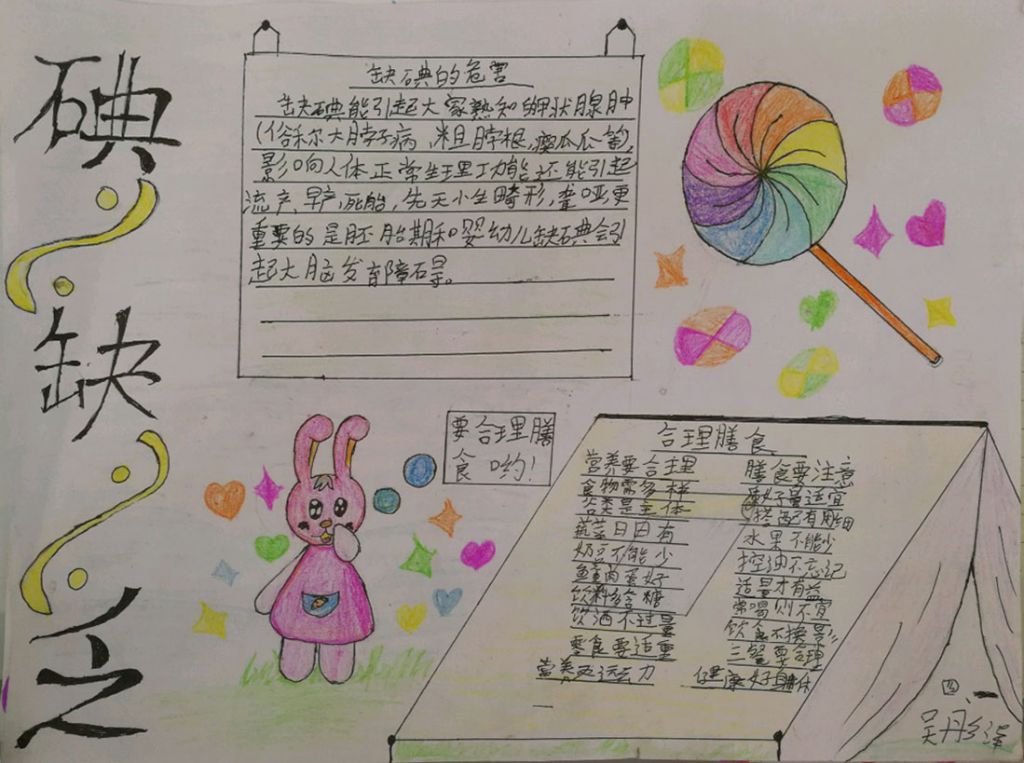 碘缺乏
缺碘的危害
缺碘能引起大家熟知的甲状腺肿
(俗称大脖子病,粗脖根,瘿瓜瓜)
影响人体正常生理功能还能引起
流产、早产,死胎,先天小生畸形,聋哑更
重要的是胚胎期和婴幼儿缺碘会引
起大脑发育障碍。
要合理膳
食哟!
合理膳食
营养要合理
食物需多样
谷类是主体
蔬菜日日有
奶豆不能少
饮酒不过量
零食要适量
膳食要注意
水果不能少
控油不忘记
适量才有益
三餐要合理
健康好身体
四、一